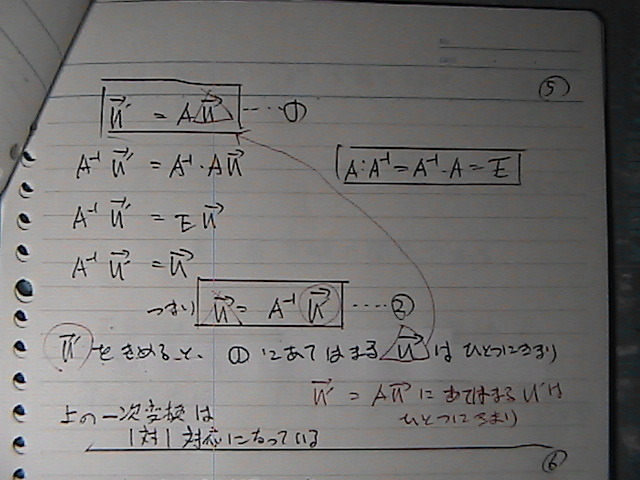 ⑤
u⃗' = Au⃗ ‥‥ ①
A⁻¹ u⃗' = A⁻¹・Au⃗
A・A⁻¹ = A⁻¹・A = E
A⁻¹ u⃗' = E u⃗
A⁻¹ u⃗' = u⃗
つまり u⃗ = A⁻¹ u⃗' ‥‥ ②
u⃗' をきめると、 ① にあてはまる u⃗ は ひとつにきまり
u⃗' = Au⃗ に あてはまる u' は
ひとつにきまり
上の一次変換は
1対1 対応になっている
⑥